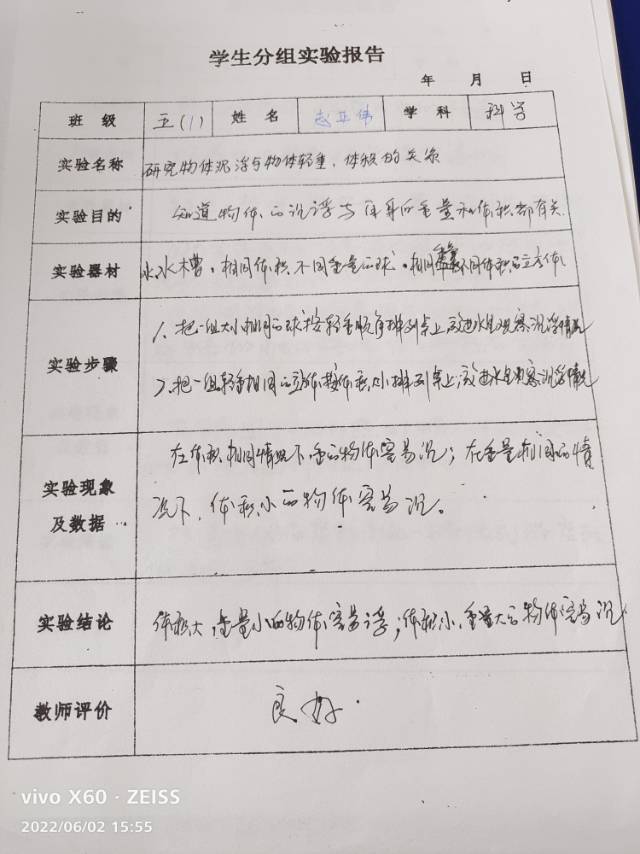 学生分组实验报告
年 月 日
班 级 五(1) 姓 名 赵正伟 学 科 科学
实验名称 研究物体沉浮与物体轻重、体积的关系
实验目的 知道物体的沉浮与自身的重量和体积都有关
实验器材 水槽、相同体积不同重量的球、相同重量不同体积的立方体
实验步骤
1、把一组大小相同的球按轻重顺序排列桌上,放进水里观察沉浮情况
2、把一组轻重相同的立方体按体积大小排列桌上,放进水里观察沉浮情况
实验现象
及数据
在体积相同情况下,重的物体容易沉;在重量相同的情
况下,体积小的物体容易沉。
实验结论 体积大,重量小的物体容易浮;体积小,重量大的物体容易沉
教师评价 良好.
vivo X60 · ZEISS
2022/06/02 15:55